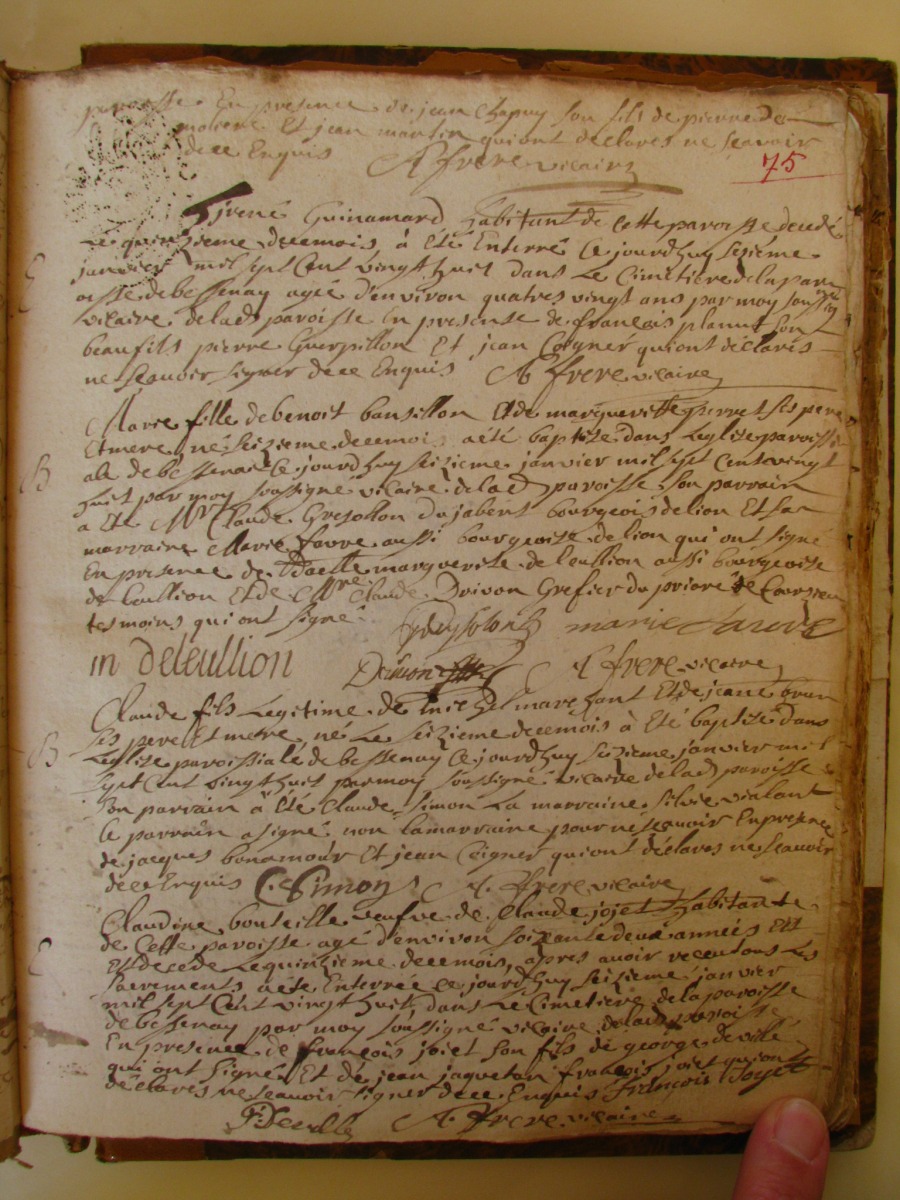 paroisse En presence de jean Chapuy son fils de pierre De
moliere Et jean martin quiont déclarés ne scavoir
dece Enquis A frere vicaire
75
irené Guinamard habitant de cette paroisse decedé
Le quinzieme decemois, à été Enterré Ce jourdhuy seizieme
janvier mil sept Cent vingthuit dans Le Cimetiere de la paro
oisse de bessenay ageé d'environ quatres vingt ans par moy soussigné
vicaire delad paroisse En presense de françois planut son
beaufils pierre Guerpillon Et jean Coigner quiont déclarés
ne scavoir signer dece Enquis A frere vicaire
E
Marie fille debenoit bansillon Etde margueritte perret ses pere
Etmere, né seizieme decemois a été baptise dans Leglise paroissi
ale de bessenai Ce jourdhuy seizieme janvier mil sept Centvingt
huit par moy soussigné vicaire delad paroisse son parrain
a Eté Mr Claude Gresollon Dujabert bourgeois delion Et sa
marraine Marie favre aussi bourgeoise delion qui ont signé
En presence de Dlle marguerite deleullion aussi bourgeoise
de Et de Mre Claude Drivon Grefier du prioré de Courzieu
tesmoins qui ont signé
B
marie favre
m deleullion Drivon A frere vicaire
Claude fils Legitime de michel marchant Et de jeane brun
ses pere Et mere né Le seizieme decemois à Eté baptise Dans
Leglise paroissiale de bessenay Ce jourdhuy seizieme janvier mil
sept Cent vingt huit parmoy soussigné vicaire delad paroisse
son parrain à Eté Claude Simon La marraine silvie vialant
le parrain asigné non lamarraine pour ne scavoir Enpresence
de jacques bonamour Et jean Coigner quiont déclarés ne scavoir
dece Enquis C. Simon A. frere vicaire
B
Claudine bouteille veufve de Claude jojet habitante
de Cette paroisse agé d'environ soixante deux années Est
Et decede Le quinzieme decemois, apres avoir receu tous Les
sacrements a été Enterrée ce jourdhuy seizieme janvier
mil sept Cent vingt huit dans Le Cimetiere de la paroisse
de bessenay par moy soussigné vicaire delad paroisse
En presence de françois joiet son fils de george deville
qui ont signé Et de jean jaquetan françois joiet quiont
déclarés ne scavoir signer dece Enquis françois Joyet
E
A. frere vicaire